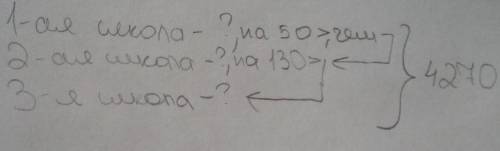 1-ая школа - ?, на 50 >, чем
2-ая школа - ?, на 130 >,
3-я школа - ?
4270